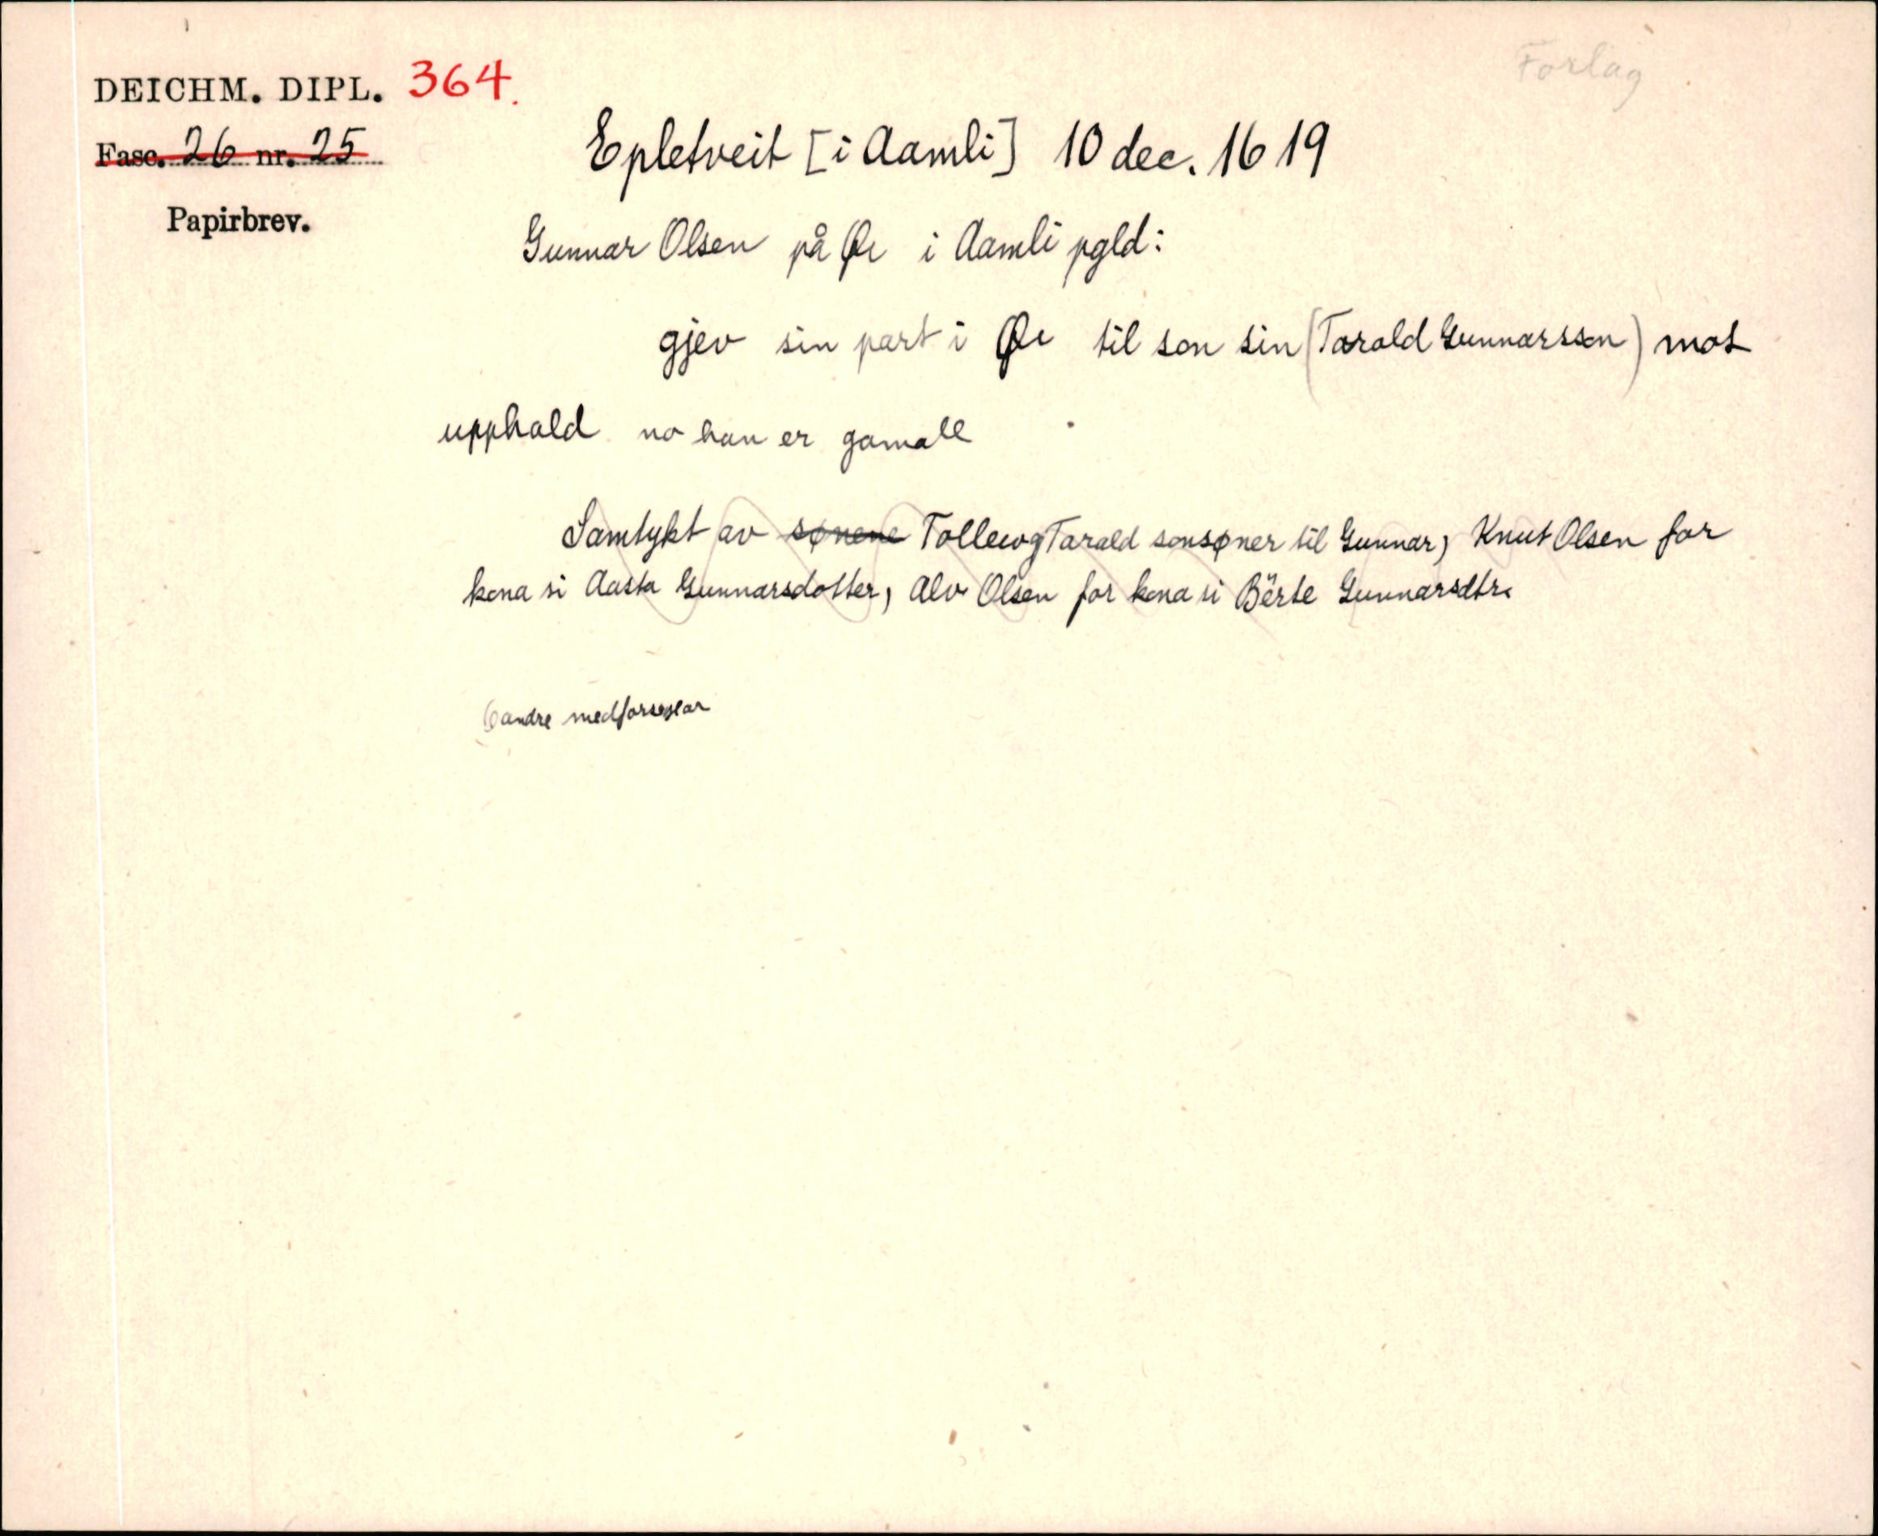 DEICHM. DIPL. 364.
Forlag
Fasc. 26 nr. 25
Epletveit [i Aamli] 10 dec. 1619
Papirbrev.
Gunnar Olsen på Øi i Aamli pgld:
gjev sin part i Øi til son sin (Tarald Gunnarsson) mot
upphald no han er gamall
Samtykt av sønene Tollew og Tarald sonsøner til Gunnar, Knut Olsen for
kona si Aasta Gunnarsdotter, Alv Olsen for kona si Bërte Gunnarsdtr.
6 andre medforseglar